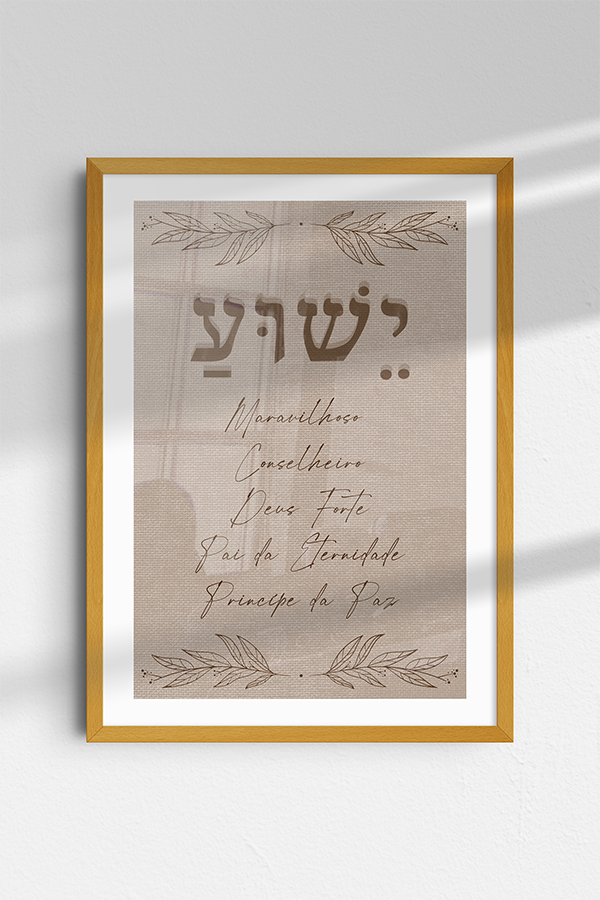 יֵשׁוּעַ
Maravilhoso
Conselheiro
Deus Forte
Pai da Eternidade
Príncipe da Paz